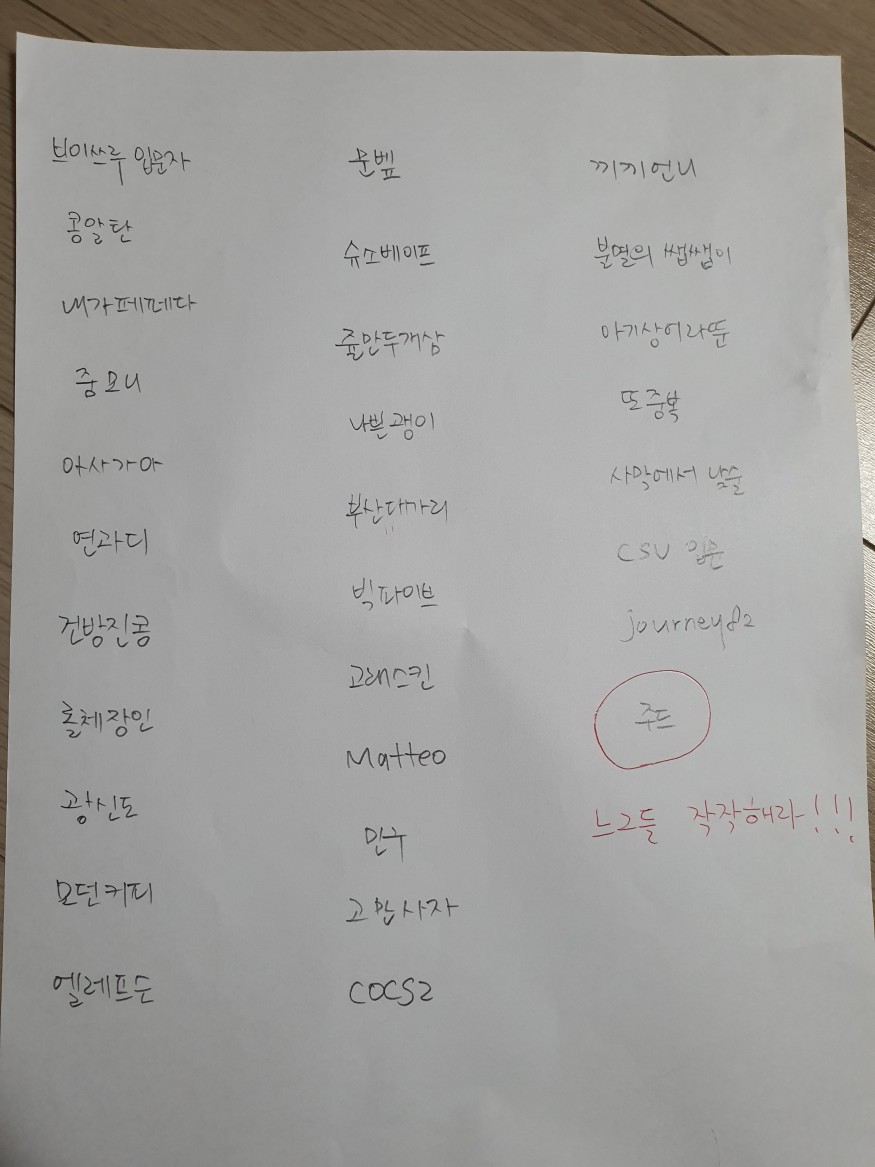 브이쓰루 입문자
콩알탄
내가페페다
줌모니
아사가아
연과디
건방진콩
홀체장인
광신도
모던커피
엘레프슨
문벺
슈소베이프
쥴만두개삼
나쁜괭이
부산대가리
빅파이브
고래스킨
Matteo
만누
고만사자
COCS2
끼끼언니
분열의 쌥쌥이
아기상어라뚠
또중복
사막에서 낮술
CSV 입문
journey82
주드
느그들 작작해라!!!